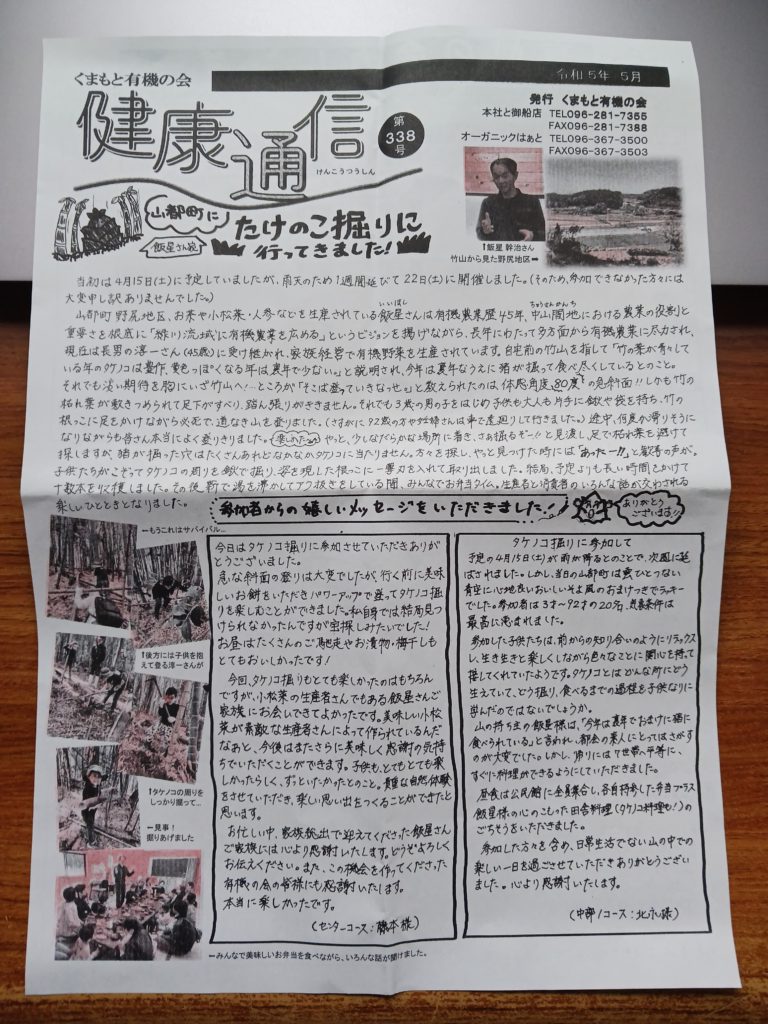 くまもと有機の会
令和5年 5月
健康通信
けんこうつうしん
第
338
号
発行 くまもと有機の会
本社と御船店 TEL096-281-7355
FAX096-281-7388
オーガニックはぁと TEL096-367-3500
FAX096-367-3503
山都町に
飯星さん宅
たけのこ掘りに
行ってきました!
↑飯星 幹治さん
竹山から見た野尻地区➡
当初は4月15日(土)に予定していましたが、雨天のため1週間延びて22日(土)に開催しました。(そのため、参加できなかった方々には
大変申し訳ありませんでした。)
山都町野尻地区、お米や小松菜・人参などを生産されている飯星さんは有機農業歴45年、中山間地における農業の役割と
いいほし
ちゅうさんかんち
重要さを根底に「緑川流域に有機農業を広める」というビジョンを掲げながら、長年にわたって多方面から有機農業に尽力され、
現在は長男の淳一さん(45歳)に受け継がれ、家族経営で有機野菜を生産されています。自宅前の竹山を指して「竹の葉が青々して
いる年のタケノコは豊作、黄色っぽくなる年は裏年で少ない。」と説明され、今年は裏年なうえに猪が掘って食べ尽くしているとのこと。
それでも淡い期待を胸にいざ竹山へ!…ところが「そこば登っていきなっせ。」と教えられたのは、体感角度80度の急斜面!!しかも竹の
枯れ葉が敷きつめられて足下がすべり、踏ん張りがききません。それでも3歳の男の子をはじめ子供も大人も片手に鍬や袋を持ち、竹の
根っこに足をかけながら必死で、道なき山を登りました。(さすがに92歳の方や妊婦さんは車で遠廻りして行きました。)途中、何度か滑りそうに
なりながらも皆さん本当によく登りきりました。やっと、少しなだらかな場所に着き、さぁ掘るぞー!!と見渡し、足で枯れ葉を避けて
探しますが、猪が掘った穴はたくさんあれどなかなかタケノコに当りません。方々を探し、やっと見つけた時には「あったー!!」と歓喜の声が。
子供たちがこぞってタケノコの周りを鍬で掘り、姿を現した根っこに一撃刃を入れて取り出しました。結局、予定よりも長い時間をかけて
十数本を収穫しました。その後、薪で湯を沸かしてアク抜きをしている間、みんなでお弁当タイム。生産者と消費者のいろんな話が交わされる
楽しいひとときとなりました。
参加者からの嬉しいメッセージをいただきました!
ありがとう
ございます!!
←もうこれはサバイバル…
↑後方には子供を抱
えて登る淳一さんが
↑タケノコの周りを
しっかり掘って…
←見事!
掘りあげました
←みんなで美味しいお弁当を食べながら、いろんな話が聞けました。
今日はタケノコ掘りに参加させていただきありが
とうございました。
急な斜面の登りは大変でしたが、行く前に美味
しいお餅をいただきパワーアップで登ってタケノコ掘
りを楽しむことができました。私自身では結局見つ
けられなかったんですが宝探しみたいでした!
お昼はたくさんのご馳走やお漬物・梅干しも
とてもおいしかったです!
今回、タケノコ掘りもとても楽しかったのはもちろん
ですが、小松菜の生産者さんでもある飯星さんご
家族にお会いできてよかったです。美味しい小松
菜が素敵な生産者さんによって作られているんだ
なぁと、今後はまたさらに美味しく感謝の気持
ちでいただくことができます。子供も、とてもとても楽
しかったらしく、ずっといたかったとのこと。貴重な自然体験
をさせていただき、楽しい思い出をつくることができたと
思います。
お忙しい中、家族総出で迎えてくださった飯星さん
ご家族には心より感謝いたします。どうぞよろしく
お伝えください。また、この機会を作ってくださった
有機の会の皆様にも感謝いたします。
本当に楽しかったです。
(センターコース:藤本様)
タケノコ掘りに参加して
予定の4月15日(土)が雨が降るとのことで、次週に延
ばされました。しかし、当日の山都町は雲ひとつない
青空に心地良いおいしいそよ風のおまけつきでラッキー
でした。参加者は3才~92才の20名、気象条件は
最高に恵まれました。
参加した子供たちは、前からの知り合いのようにリラックス
し、生き生きと楽しくしながら色々なことに関心を持って
接してくれていたようです。タケノコとはどんな所にどう
生えていて、どう掘り、食べるまでの過程を子供なりに
学んだのではないでしょうか。
山の持ち主の飯星様は、「今年は裏年でおまけに猪に
食べられている」と言われ、都会の素人にとってはさがす
のが大変でした。しかし、帰りには7世帯へ平等に、
すぐに料理ができるようにしていただきました。
昼食は公民館に全員集合し、各自持参した弁当プラス
飯星様の心のこもった田舎料理(タケノコ料理も!)の
ごちそうをいただきました。
参加した方々を含め、日常生活でない山の中での
楽しい一日を過ごさせていただきありがとうござい
ました。心より感謝いたします。